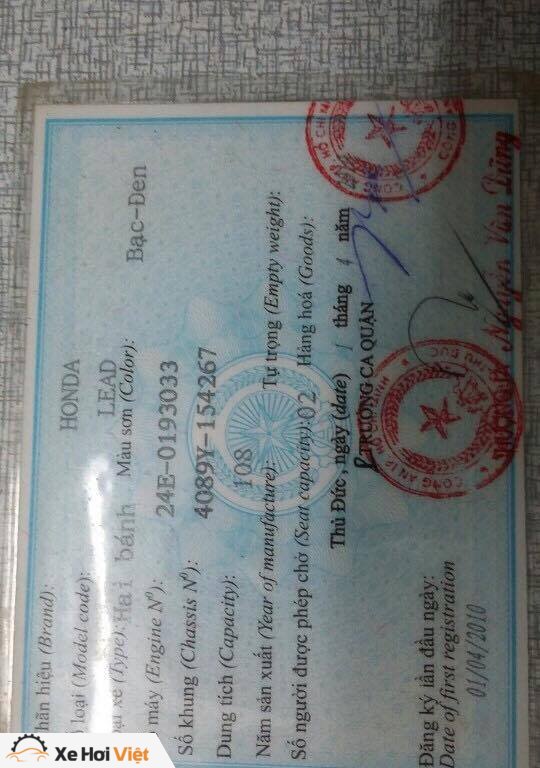 hãn hiệu (Brand): HONDA
loại (Model code): LEAD
ại xe (Type): Hai bánh Màu sơn (Color): Bạc-Đen
máy (Engine Nº): 24E-0193033
Số khung (Chassis Nº): 4089Y-154267
Dung tích (Capacity): 108
Năm sản xuất (Year of manufacture): Tự trọng (Empty weight):
Số người được phép chở (Seat capacity): 02 Hàng hoá (Goods):
Thủ Đức, ngày (date) 1 tháng 4 năm
TRƯỞNG CA QUẬN
Nguyễn Văn Dũng
Đăng ký lần đầu ngày:
Date of first registration
01/04/2010
Xe Hơi Việt